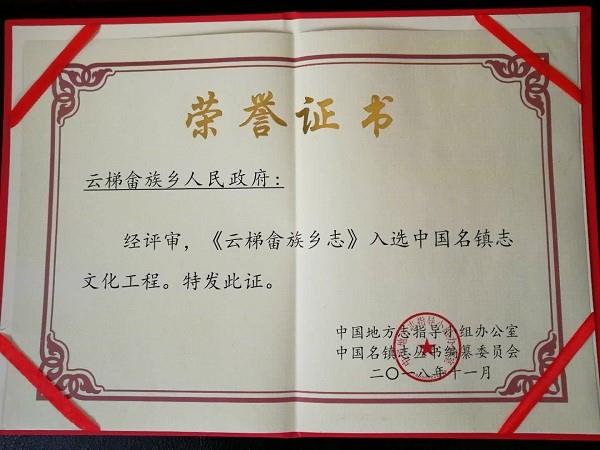 荣誉证书
云梯畲族乡人民政府：
经评审，《云梯畲族乡志》入选中国名镇志
文化工程。特发此证。
中国地方志指导小组办公室
中国名镇志丛书编纂委员会
二〇一八年十一月